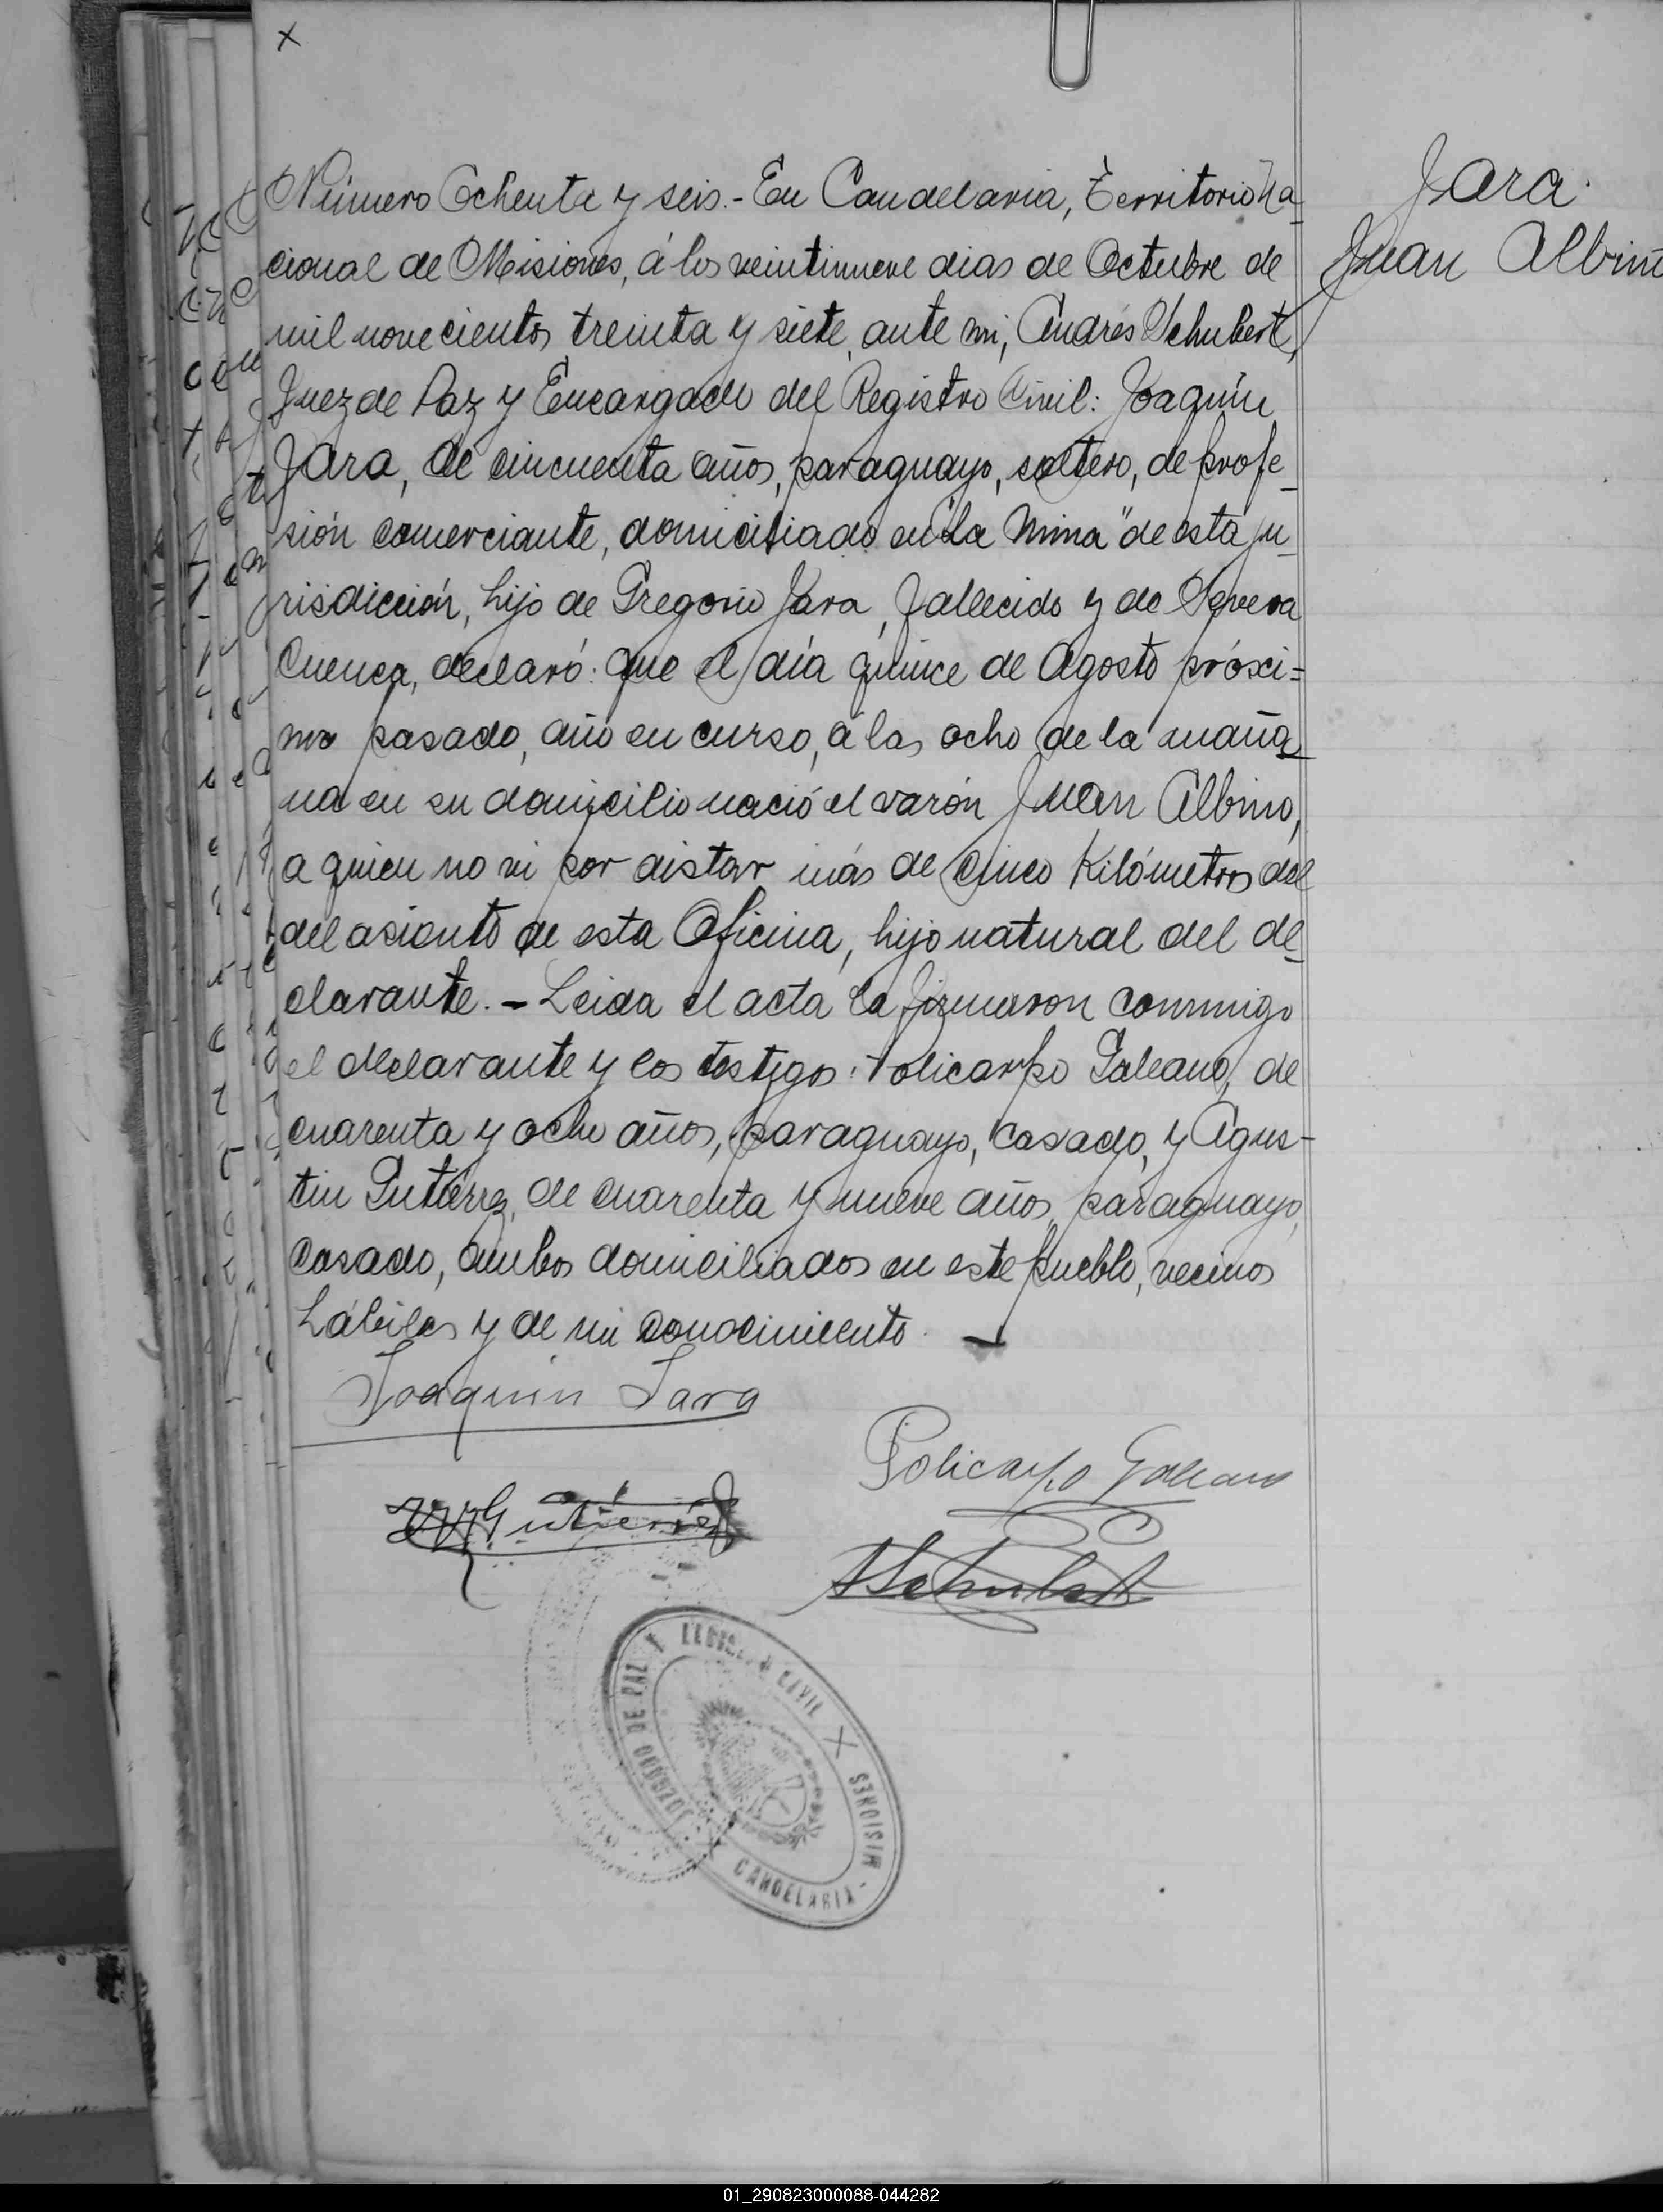 x
Número Ochenta y seis.- En Candelaria, Territorio Na-
cional de Misiones, á los veintinueve dias de Octubre de
mil novecientos treinta y siete, ante mi, Andrés Schubert,
Juez de Paz y Encargado del Registro Civil: Joaquín
Jara, de cincuenta años, paraguayo, soltero, de profe-
sión comerciante, domiciliado en "La Mina" de esta ju-
risdicción, hijo de Gregorio Jara, fallecido y de Severa
Cuenca, declaró: que el día quince de Agosto próxi=
mo pasado, año en curso, á las ocho de la maña-
na en su domicilio nació el varón Juan Albino,
a quien no vi por distar más de cinco Kilómetros del
del asiento de esta Oficina, hijo natural del de-
clarante.- Leida el acta la firmaron conmigo
el declarante y los testigos: Policarpo Galeano, de
cuarenta y ocho años, paraguayo, casado, y Agus-
tin Gutiérrez, de cuarenta y nueve años, paraguayo,
casado, ambos domiciliados en este pueblo, vecinos
hábiles y de mi conocimiento. -
Jara.
Juan Albino
Joaquin Jara
Policarpo Galeano
Gutiérrez
ASchubert
REGISTRO CIVIL
JUZGADO DE PAZ
CANDELARIA - MISIONES
01_290823000088-044282